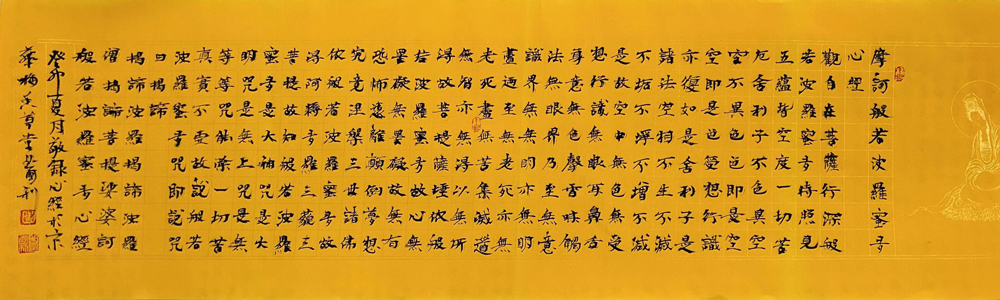 摩訶般若波羅蜜多
心經
觀自在菩薩行深般
若波羅蜜多時照見
五蘊皆空度一切苦
厄舍利子色不異空
空不異色色即是空
空即是色受想行識
亦復如是舍利子是
諸法空相不生不滅
不垢不淨不增不減
是故空中無色無受
想行識無眼耳鼻舌
身意無色聲香味觸
法無眼界乃至無意
識界無無明亦無無明
盡迺至無老死亦無
老死盡無苦集滅道
無智亦無得以無所
得故菩提薩埵依般
若波羅蜜多故心無
罣礙無罣礙故無有
恐怖遠離顛倒夢想
究竟涅槃三世諸佛
依般若波羅蜜多故
得阿耨多羅三藐三
菩提故知般若波羅
蜜多是大神咒是大
明咒是無上咒是無
等等咒能除一切苦
真實不虛故說般若
波羅蜜多咒即說咒
曰揭諦
揭諦波羅揭諦波羅
僧揭諦菩提娑婆訶
般若波羅蜜多心經
癸卯夏月敬錄心經於京
華梅草堂